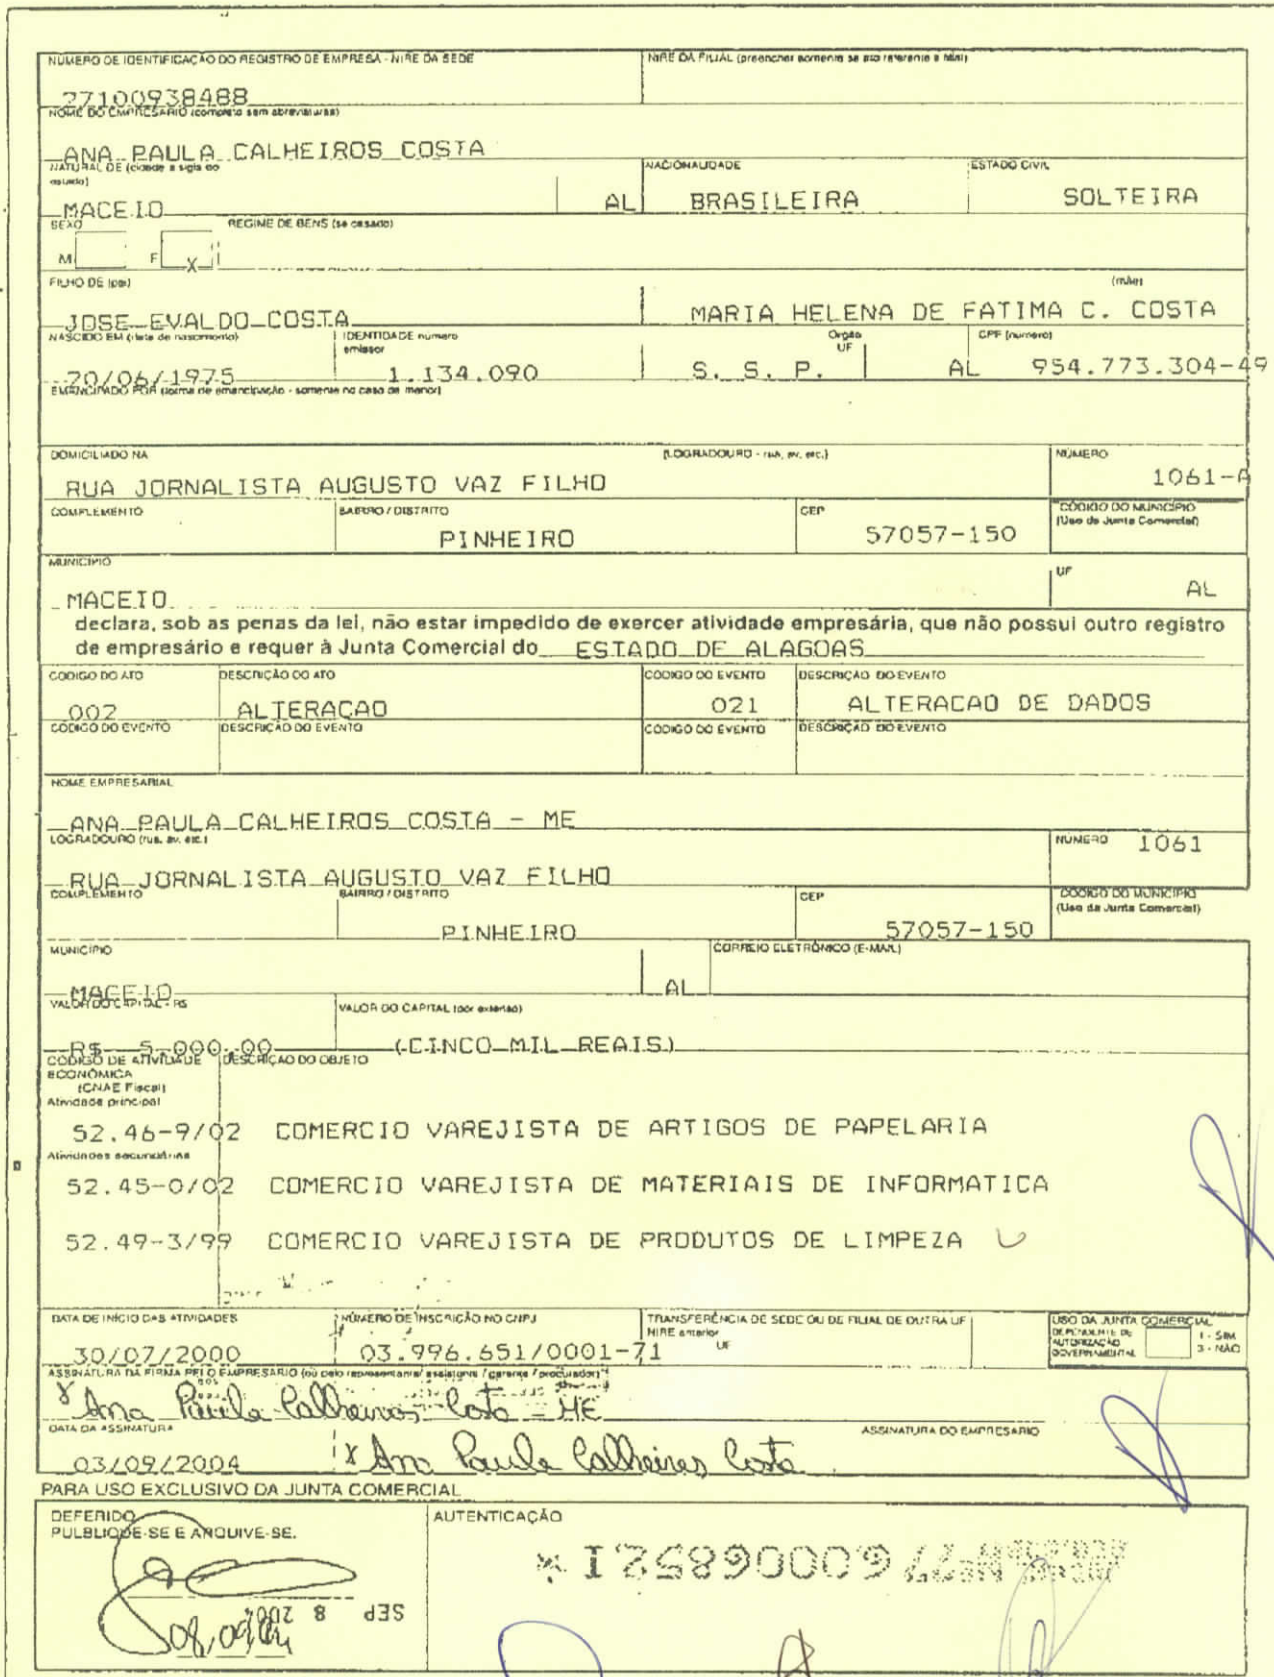 NÚMERO DE IDENTIFICAÇÃO DO REGISTRO DE EMPRESA - NIRE DA SEDE
NIRE DA FILIAL (preencher somente se ato referente a filial)
27100938488
NOME DO EMPRESÁRIO (completo sem abreviaturas)
ANA PAULA CALHEIROS COSTA
NATURAL DE (cidade e sigla do estado)
NACIONALIDADE
ESTADO CIVIL
MACEIO AL BRASILEIRA SOLTEIRA
SEXO
REGIME DE BENS (se casado)
M F X
FILHO DE (pai)
(mãe)
JOSE EVALDO COSTA MARIA HELENA DE FATIMA C. COSTA
NASCIDO EM (data de nascimento)
IDENTIDADE número
emissor
Orgão
UF
CPF (número)
20/06/1975 1.134.090 S. S. P. AL 954.773.304-49
EMANCIPADO POR (forma de emancipação - somente no caso de menor)
DOMICILIADO NA
(LOGRADOURO - rua, av, etc.)
NÚMERO
RUA JORNALISTA AUGUSTO VAZ FILHO 1061-A
COMPLEMENTO
BAIRRO / DISTRITO
CEP
CÓDIGO DO MUNICÍPIO
(Uso da Junta Comercial)
PINHEIRO 57057-150
MUNICÍPIO
UF
MACEIO AL
declara, sob as penas da lei, não estar impedido de exercer atividade empresária, que não possui outro registro
de empresário e requer à Junta Comercial do ESTADO DE ALAGOAS
CÓDIGO DO ATO
DESCRIÇÃO DO ATO
CÓDIGO DO EVENTO
DESCRIÇÃO DO EVENTO
002 ALTERACAO 021 ALTERACAO DE DADOS
CÓDIGO DO EVENTO
DESCRIÇÃO DO EVENTO
CÓDIGO DO EVENTO
DESCRIÇÃO DO EVENTO
NOME EMPRESARIAL
ANA PAULA CALHEIROS COSTA - ME
LOGRADOURO (rua, av, etc.)
NÚMERO 1061
RUA JORNALISTA AUGUSTO VAZ FILHO
COMPLEMENTO
BAIRRO / DISTRITO
CEP
CÓDIGO DO MUNICÍPIO
(Uso da Junta Comercial)
PINHEIRO 57057-150
MUNICÍPIO
CORREIO ELETRÔNICO (E-MAIL)
MACEIO AL
VALOR DO CAPITAL - R$
VALOR DO CAPITAL (por extenso)
R$ 5.000,00 (CINCO MIL REAIS)
CÓDIGO DE ATIVIDADE
ECONÔMICA
(CNAE Fiscal)
DESCRIÇÃO DO OBJETO
Atividade principal
52.46-9/02 COMERCIO VAREJISTA DE ARTIGOS DE PAPELARIA
Atividades secundárias
52.45-0/02 COMERCIO VAREJISTA DE MATERIAIS DE INFORMATICA
52.49-3/99 COMERCIO VAREJISTA DE PRODUTOS DE LIMPEZA
DATA DE INÍCIO DAS ATIVIDADES
NÚMERO DE INSCRIÇÃO NO CNPJ
TRANSFERÊNCIA DE SEDE OU DE FILIAL DE OUTRA UF
NIRE anterior
UF
USO DA JUNTA COMERCIAL
DEPENDENTE DE
AUTORIZAÇÃO
GOVERNAMENTAL
1 - SIM
3 - NÃO
30/07/2000 03.996.651/0001-71
ASSINATURA DA FIRMA PELO EMPRESÁRIO (ou pelo representante/assistente/gerente/procurador)
x Ana Paula Calheiros Costa - ME
DATA DA ASSINATURA
ASSINATURA DO EMPRESÁRIO
03/09/2004 x Ana Paula Calheiros Costa
PARA USO EXCLUSIVO DA JUNTA COMERCIAL
DEFERIDO
PULBLIQUE-SE E ARQUIVE-SE.
AUTENTICAÇÃO
SEP 8 2004
08/09/04